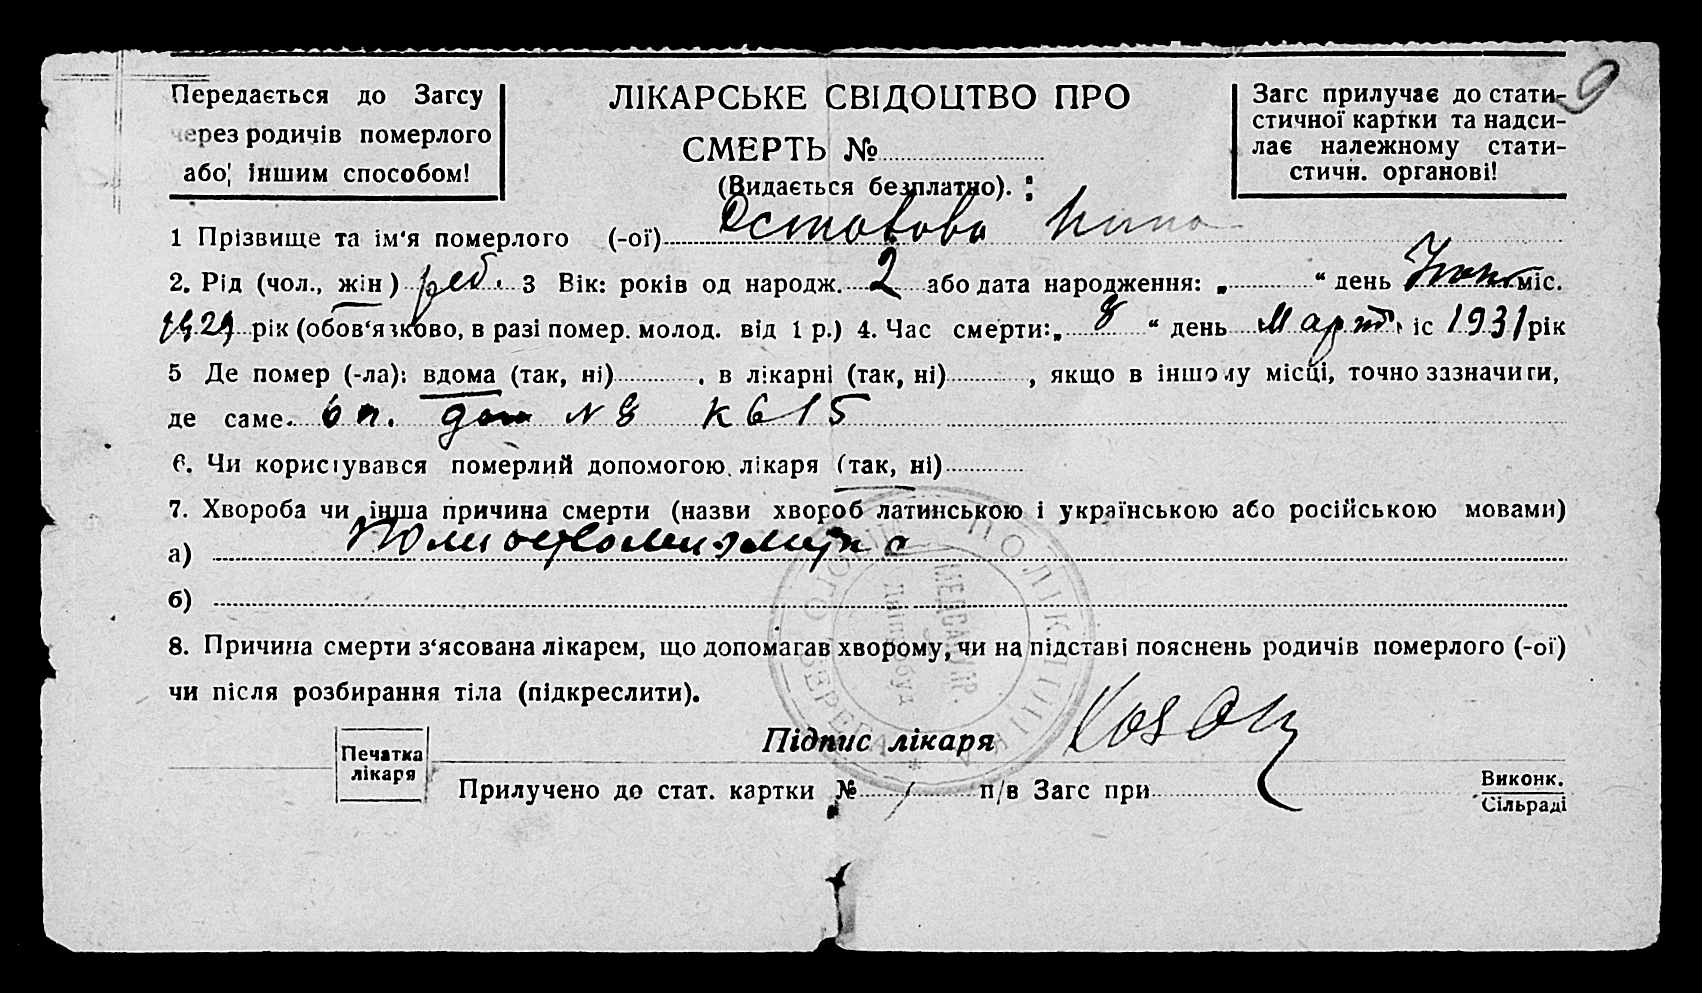 9
Передається до Загсу
через родичів померлого
або іншим способом!
ЛІКАРСЬКЕ СВІДОЦТВО ПРО
СМЕРТЬ №
(Видається безплатно).
Загс прилучає до стати-
стичної картки та надси-
лає належному стати-
стичн. органові!
1 Прізвище та ім'я померлого (-ої) Остапова Нина
2. Рід (чол., жін) реб. 3 Вік: років од народж. 2 або дата народження: „ “ день міс.
1929 рік (обов'язково, в разі помер. молод. від 1 р.) 4. Час смерти: „ 8 “ день Март іс 1931 рік
5 Де помер (-ла): вдома (так, ні) , в лікарні (так, ні) , якщо в іншому місці, точно зазначити,
де саме. 6 п. дом N 8 К 615
6. Чи користувався померлий допомогою лікаря (так, ні)
7. Хвороба чи інша причина смерти (назви хвороб латинською і українською або російською мовами)
а)
б)
8. Причина смерти з'ясована лікарем, що допомагав хворому, чи на підставі пояснень родичів померлого (-ої)
чи після розбирання тіла (підкреслити).
ПОЛІКЛІНІКА
МЕДСАНУПР.
Дніпробуд
Підпис лікаря
Печатка
лікаря
Прилучено до стат. картки № п/в Загс при
Виконк.
Сільраді